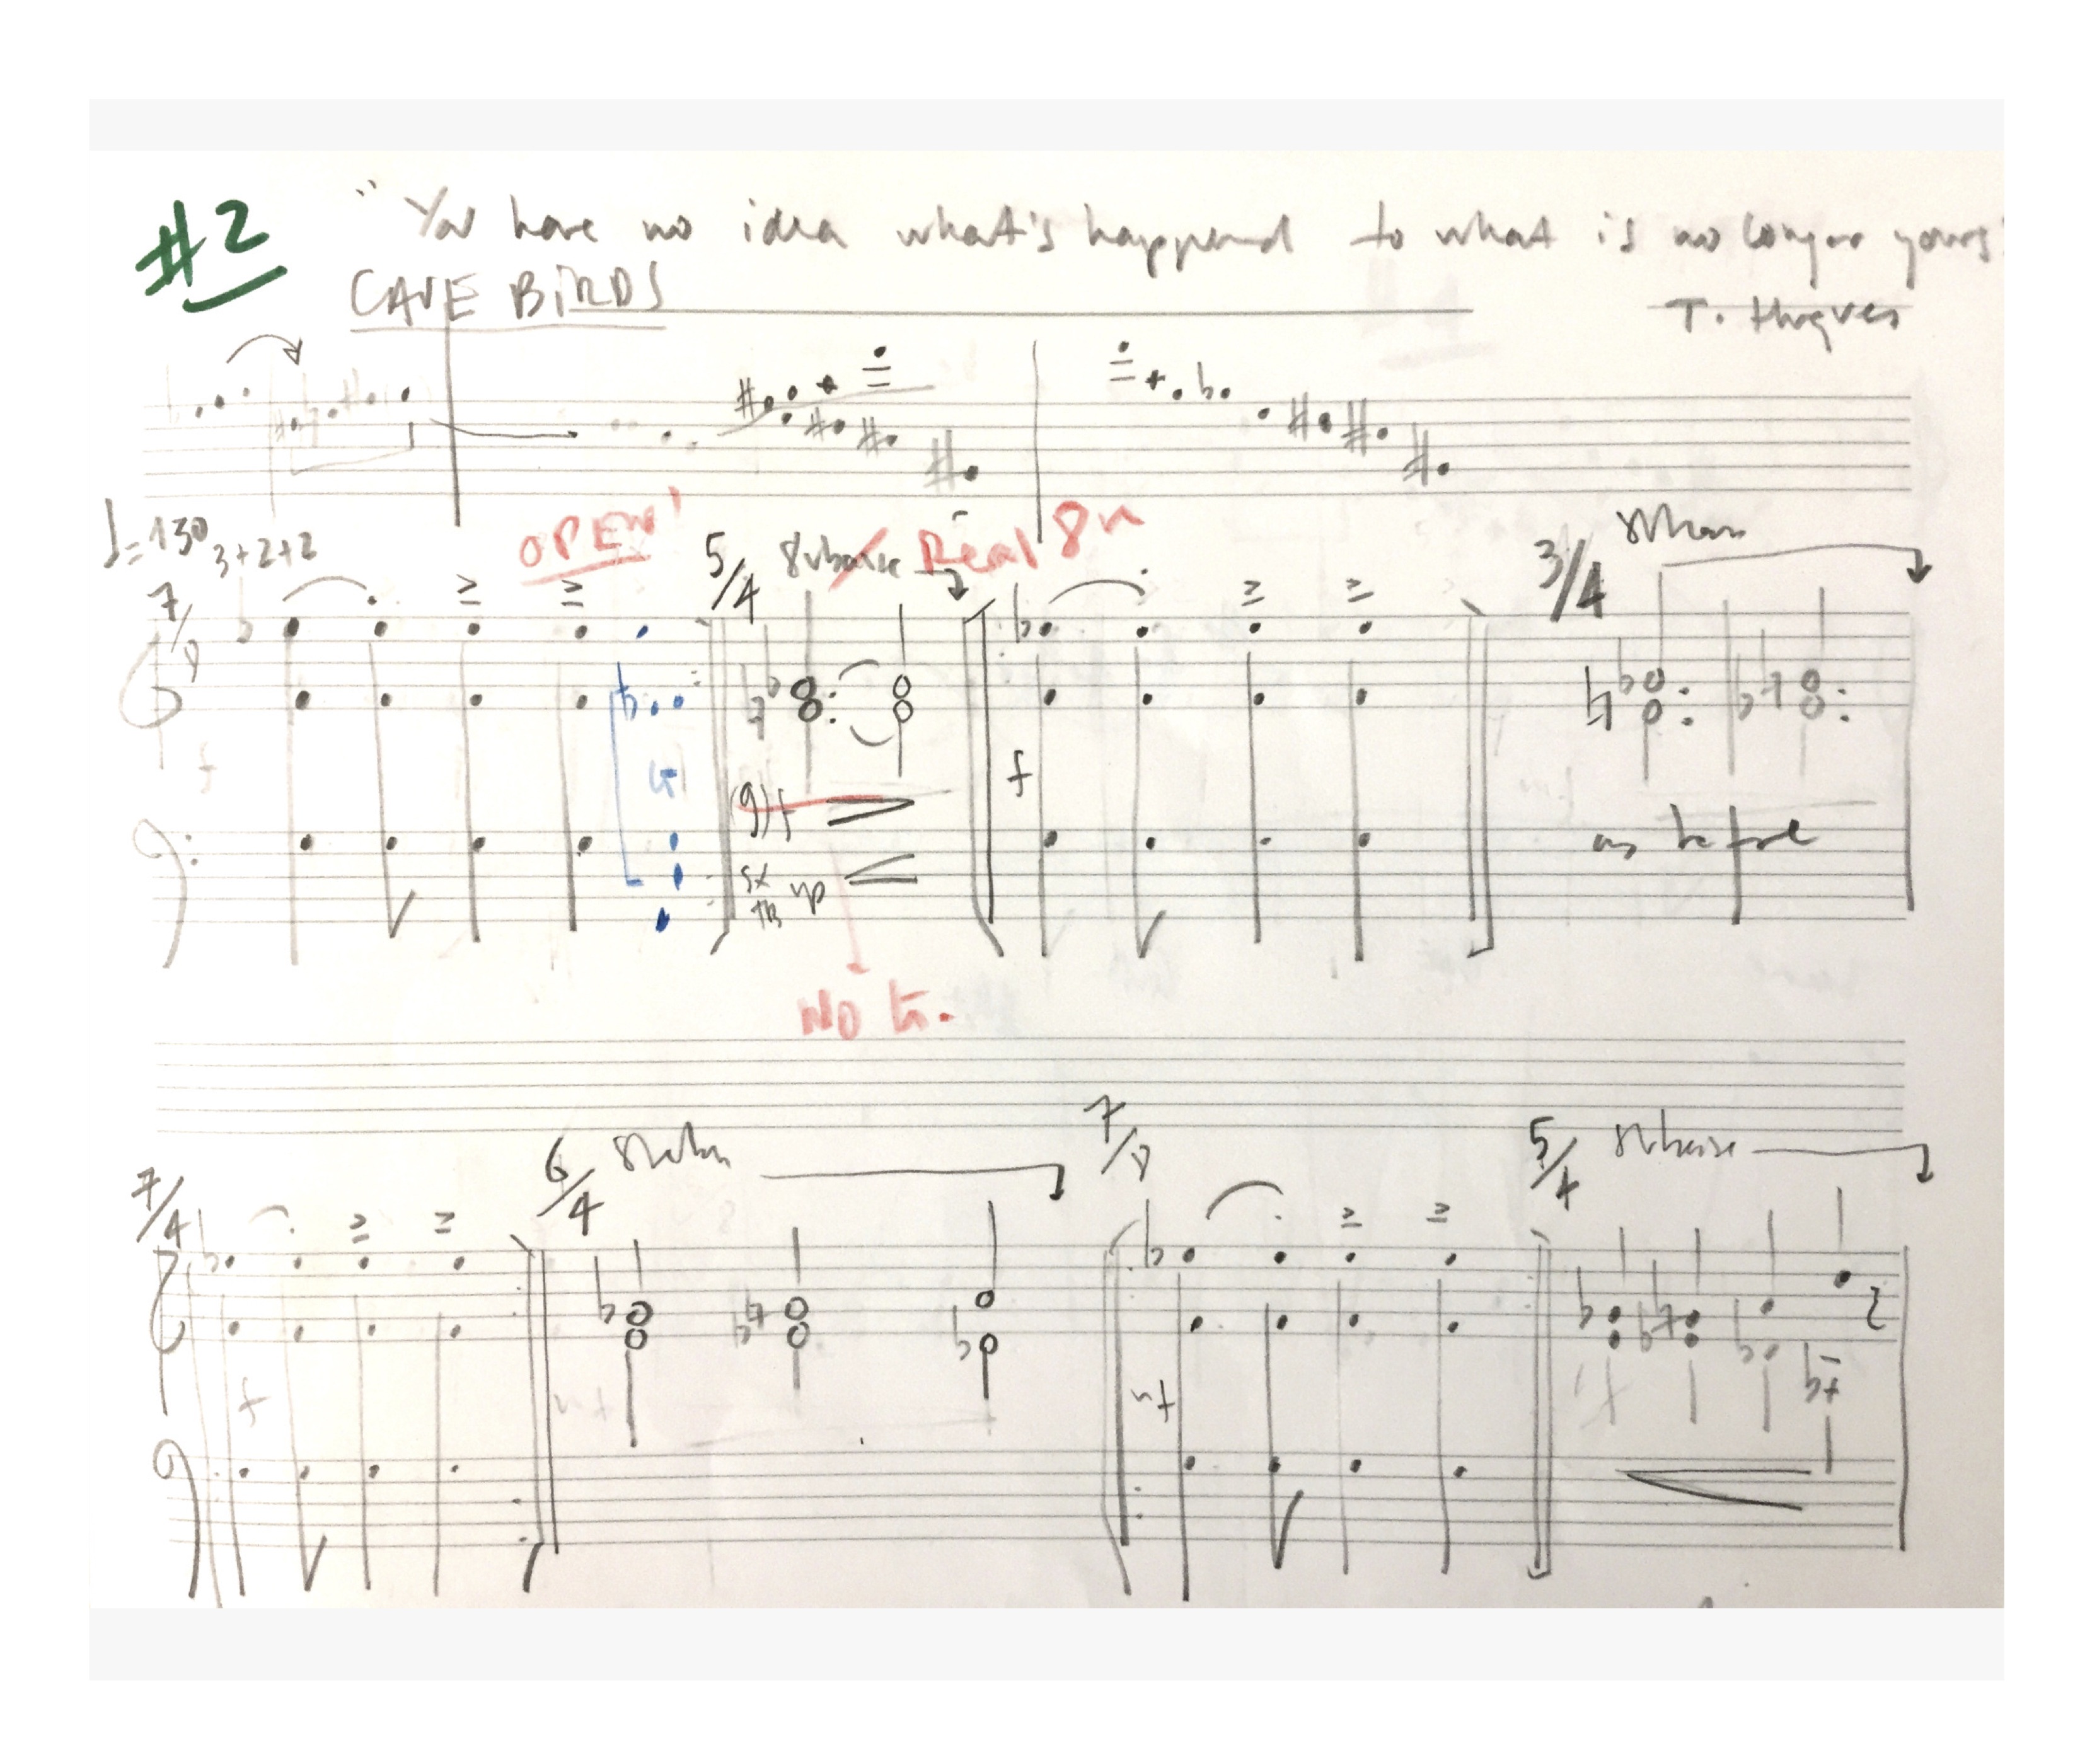 #2 "You have no idea what's happened to what is no longer yours"
CAVE BIRDS
T. Hughes
♩=130 3+2+2
OPEN!
5/4 8vbassa Real 8v
3/4
7/8
f
f
(g) f
as before
sx
tb
NO
7/4
6/4
7/8
5/4 8vbassa
f
mf
mf